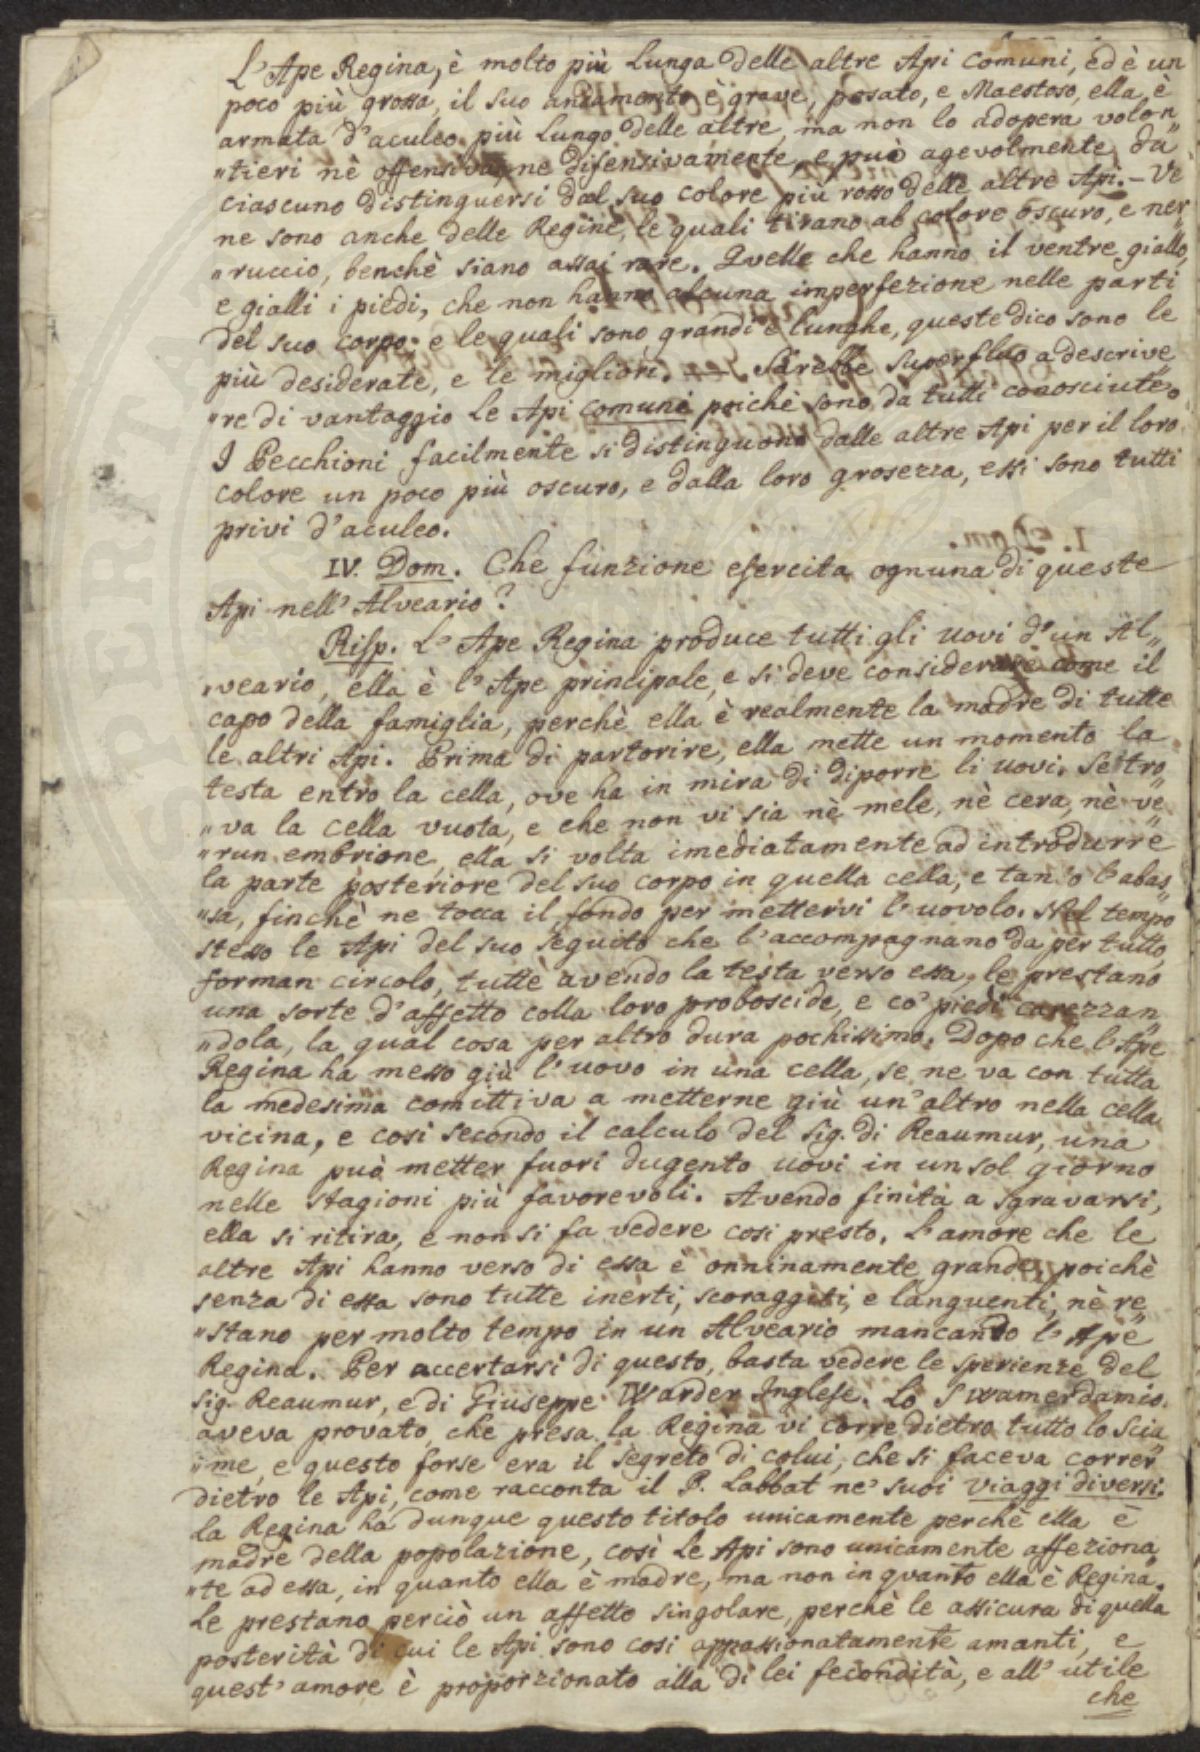 L'Ape Regina, è molto più lunga delle altre Api Comuni, ed è un
poco più grossa, il suo andamento è grave, posato, e Maestoso, ella è
armata d'aculeo più lungo delle altre, ma non lo adopera volon„
„tieri nè offensiva, ne difensivamente, e può agevolmente da
ciascuno distinguersi dal suo colore più rosso delle altre Api. – Ve
ne sono anche delle Regine, le quali tirano al colore oscuro, e ner„
„ruccio, benchè siano assai rare. Quelle che hanno il ventre giallo,
e gialli i piedi, che non hanno alcuna imperfezione nelle parti
del suo corpo; e le quali sono grandi e lunghe, queste dico sono le
più desiderate, e le migliori. — Sarebbe superfluo a descrive„
„re di vantaggio le Api comuni poichè sono da tutti conosciute.
I Pecchioni facilmente si distinguono dalle altre Api per il loro
colore un poco più oscuro, e dalla loro grosezza, essi sono tutti
privi d'aculeo.
IV. Dom. Che funzione esercita ognuna di queste
Api nell'Alveario?
Risp. L'Ape Regina produce tutti gli uovi d'un Al„
„veario, ella è l'Ape principale, e si deve considerare come il
capo della famiglia, perchè ella è realmente la madre di tutte
le altri Api. Prima di partorire, ella mette un momento la
testa entro la cella, ove ha in mira di diporre li uovi. Se tro„
„va la cella vuota, e che non vi sia nè mele, nè cera, nè ve„
„run embrione, ella si volta imediatamente ad introdurre
la parte posteriore del suo corpo in quella cella, e tanto l'abas„
„sa, finchè ne tocca il fondo per mettervi l'uovolo. Nel tempo
stesso le Api del suo seguito che l'accompagnano da per tutto,
forman circolo, tutte avendo la testa verso essa, le prestano
una sorte d'affetto colla loro proboscide, e co' piedi carezzan„
„dola, la qual cosa per altro dura pochissimo. Dopo che l'Ape
Regina ha messo giù l'uovo in una cella, se ne va con tutta
la medesima comittiva a metterne giù un'altro nella cella
vicina, e così secondo il calculo del Sig. di Reaumur, una
Regina può metter fuori dugento uovi in un sol giorno
nelle stagioni più favorevoli. Avendo finita a sgravarsi,
ella si ritira, e non si fa vedere così presto. L'amore che le
altre Api hanno verso di essa è onninamente grande, poichè
senza di essa sono tutte inerti, scoraggiti, e languenti, nè re„
„stano per molto tempo in un Alveario mancando l'Ape
Regina. Per accertarsi di questo, basta vedere le sperienze del
Sig. Reaumur, e di Giuseppe Warder Inglese. Lo Swamerdamio
aveva provato, che presa la Regina vi corre dietro tutto lo scia„
„me, e questo forse era il segreto di colui, che si faceva correr
dietro le Api, come racconta il P. Labbat ne' suoi viaggi diversi.
La Regina ha dunque questo titolo unicamente perchè ella è
madre della popolazione, così le Api sono unicamente affeziona„
„te ad essa, in quanto ella è madre, ma non in quanto ella è Regina.
Le prestano perciò un affetto singolare, perchè le assicura di quella
posterità di cui le Api sono così appassionatamente amanti, e
quest'amore è proporzionato alla di lei fecondità, e all'utile
che